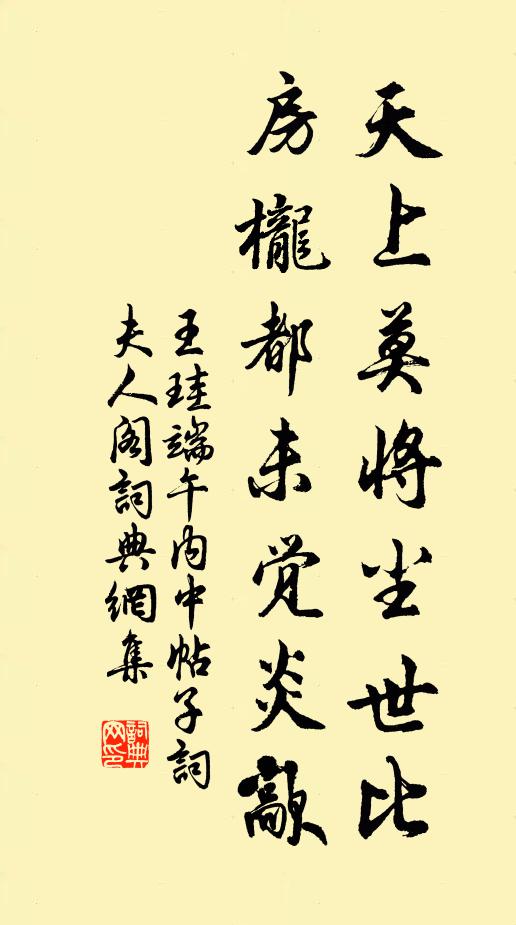 天上莫將尘世比
房櫳都未觉炎歊
王珪端午内中帖子詞
夫人阁詞典網集
詞典网印